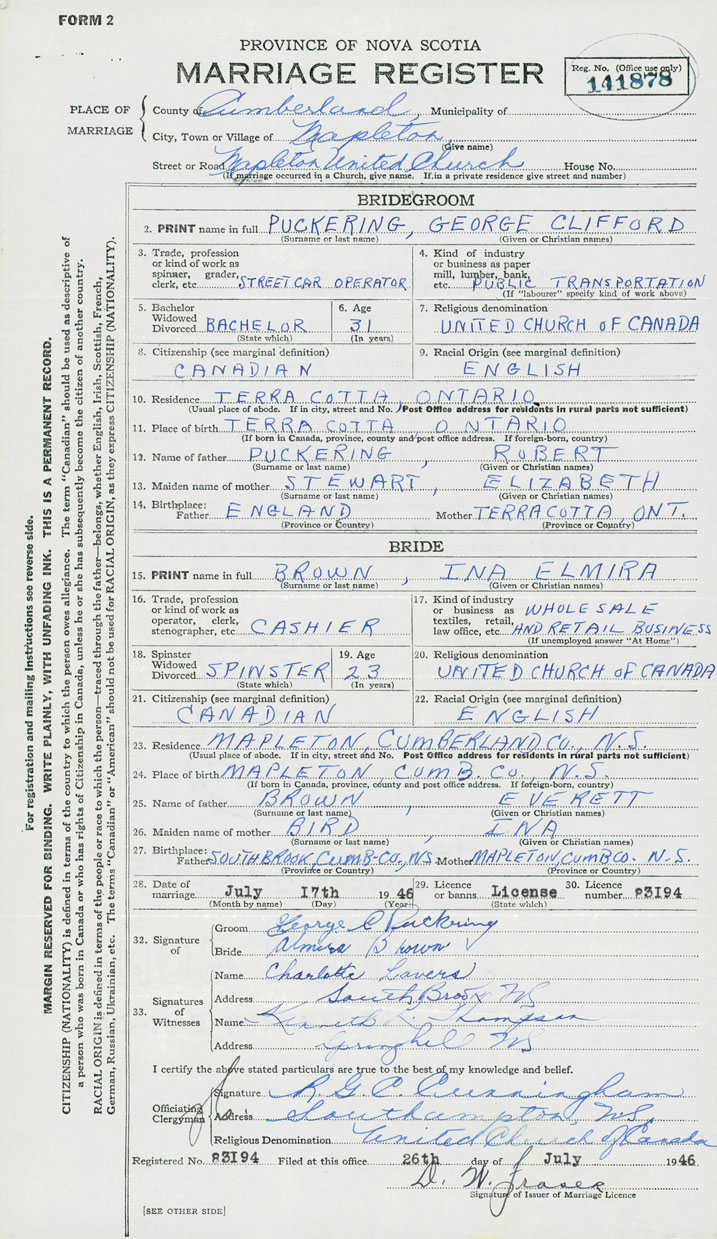 FORM 2
PROVINCE OF NOVA SCOTIA
MARRIAGE REGISTER
Reg. No. (Office use only)
141878
PLACE OF MARRIAGE
County of Cumberland, Municipality of
City, Town or Village of Mapleton,
(Give name)
Street or Road Mapleton United Church House No.
(If marriage occurred in a Church, give name. If in a private residence give street and number)
BRIDEGROOM
2. PRINT name in full PUCKERING, GEORGE CLIFFORD
(Surname or last name) (Given or Christian names)
3. Trade, profession or kind of work as spinner, grader, clerk, etc. STREET CAR OPERATOR
4. Kind of industry or business as paper mill, lumber, bank, etc. PUBLIC TRANSPORTATION
(If "labourer" specify kind of work above)
5. Bachelor Widowed Divorced BACHELOR
(State which)
6. Age 31
(In years)
7. Religious denomination
UNITED CHURCH OF CANADA
8. Citizenship (see marginal definition)
CANADIAN
9. Racial Origin (see marginal definition)
ENGLISH
10. Residence TERRA COTTA, ONTARIO
(Usual place of abode. If in city, street and No. Post Office address for residents in rural parts not sufficient)
11. Place of birth TERRA COTTA ONTARIO
(If born in Canada, province, county and post office address. If foreign-born, country)
12. Name of father PUCKERING, ROBERT
(Surname or last name) (Given or Christian names)
13. Maiden name of mother STEWART, ELIZABETH
(Surname or last name) (Given or Christian names)
14. Birthplace: Father ENGLAND Mother TERRACOTTA, ONT.
(Province or Country) (Province or Country)
BRIDE
15. PRINT name in full BROWN, INA ELMIRA
(Surname or last name) (Given or Christian names)
16. Trade, profession or kind of work as operator, clerk, stenographer, etc. CASHIER
17. Kind of industry or business as textiles, retail, law office, etc. WHOLESALE AND RETAIL BUSINESS
(If unemployed answer "At Home")
18. Spinster Widowed Divorced SPINSTER
(State which)
19. Age 23
(In years)
20. Religious denomination
UNITED CHURCH OF CANADA
21. Citizenship (see marginal definition)
CANADIAN
22. Racial Origin (see marginal definition)
ENGLISH
23. Residence MAPLETON, CUMBERLAND CO., N.S.
(Usual place of abode. If in city, street and No. Post Office address for residents in rural parts not sufficient)
24. Place of birth MAPLETON, CUMB. CO., N.S.
(If born in Canada, province, county and post office address. If foreign-born, country)
25. Name of father BROWN, EVERETT
(Surname or last name) (Given or Christian names)
26. Maiden name of mother BIRD, INA
(Surname or last name) (Given or Christian names)
27. Birthplace: Father SOUTHBROOK, CUMB-CO., NS. Mother MAPLETON, CUMB CO. N.S.
(Province or Country) (Province or Country)
28. Date of marriage July 17th 1946
(Month by name) (Day) (Year)
29. Licence or banns License
(State which)
30. Licence number 83194
32. Signature of
Groom George C Puckering
Bride Almira Brown
33. Signatures of Witnesses
Name Charlotte Lavers
Address South Brook NS
Name Kenneth R. Thompson
Address Springhill NS
I certify the above stated particulars are true to the best of my knowledge and belief.
Officiating Clergyman
Signature R. G. C. Cunningham
Address Southampton, NS.
Religious Denomination United Church of Canada
Registered No. 83194 Filed at this office 26th day of July 1946
D. W. Fraser
Signature of Issuer of Marriage Licence
[SEE OTHER SIDE]
For registration and mailing instructions see reverse side.
MARGIN RESERVED FOR BINDING. WRITE PLAINLY, WITH UNFADING INK. THIS IS A PERMANENT RECORD.
CITIZENSHIP (NATIONALITY) is defined in terms of the country to which the person owes allegiance. The term "Canadian" should be used as descriptive of
a person who was born in Canada or who has rights of Citizenship in Canada, unless he or she has subsequently become the citizen of another country.
RACIAL ORIGIN is defined in terms of the people or race to which the person—traced through the father—belongs, whether English, Irish, Scottish, French,
German, Russian, Ukrainian, etc. The terms "Canadian" or "American" should not be used for RACIAL ORIGIN, as they express CITIZENSHIP (NATIONALITY).